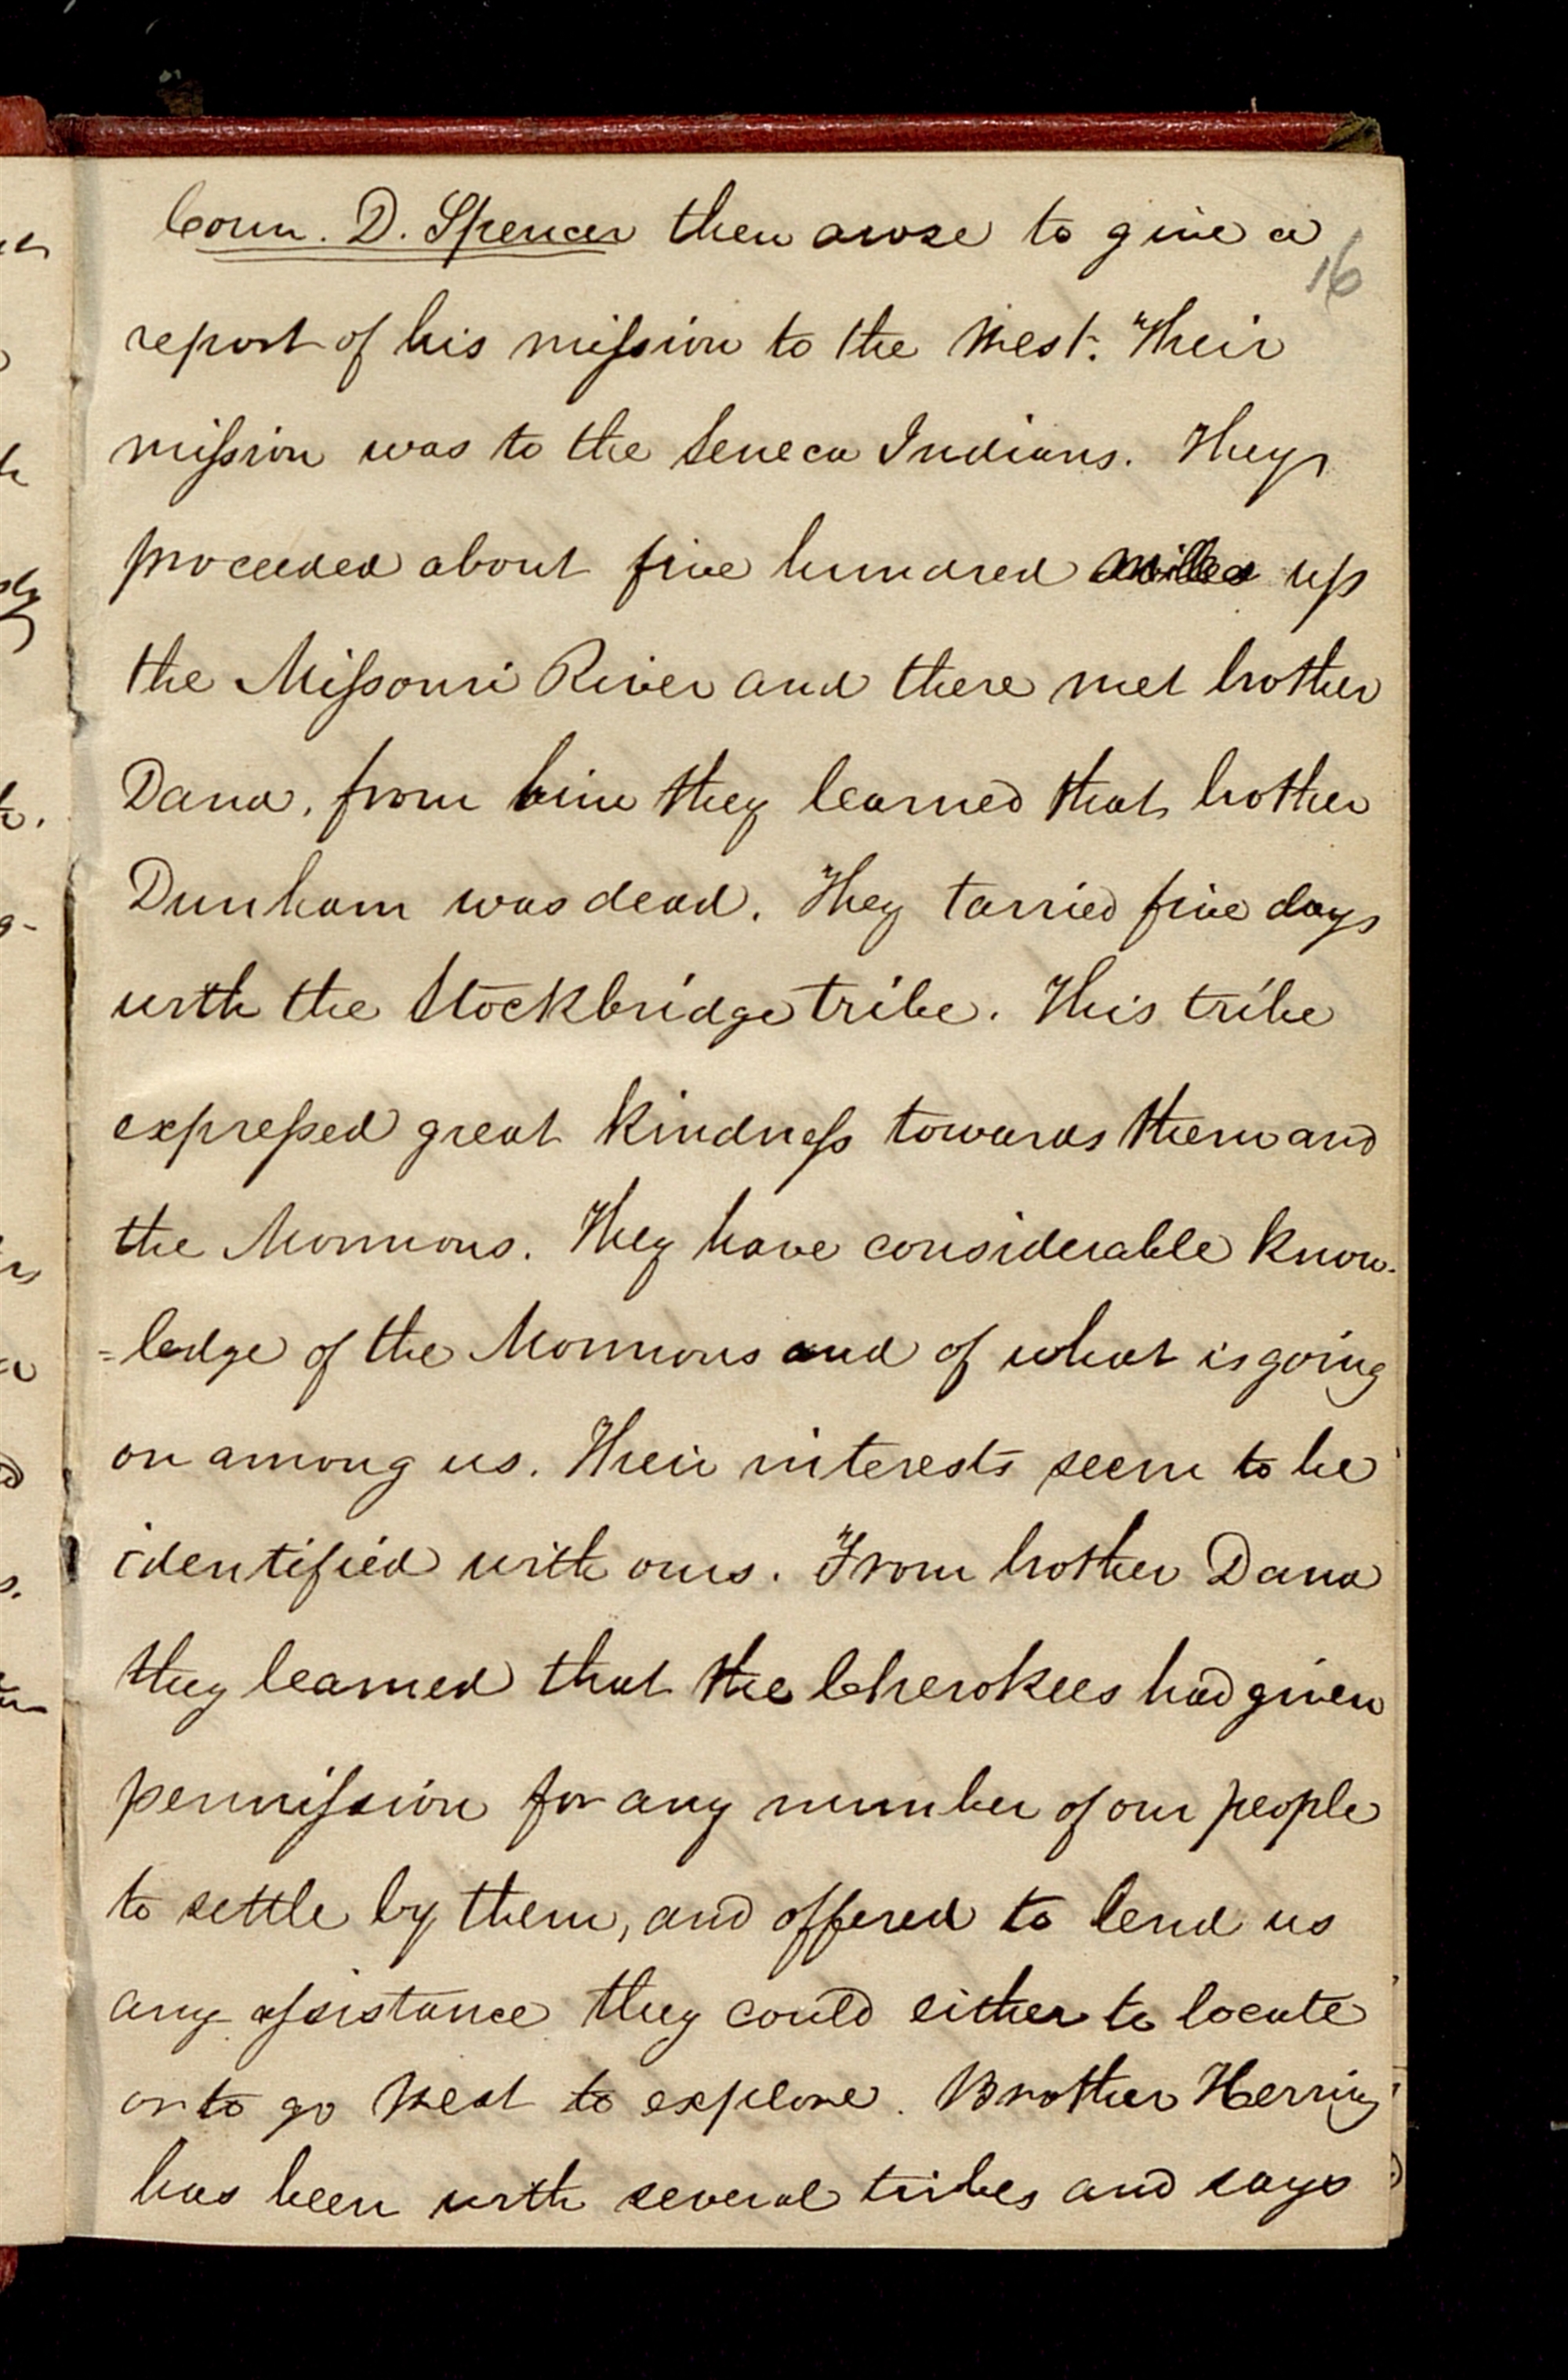 Coun. D. Spencer then arose to give a
16
report of his mission to the West. Their
mission was to the Seneca Indians. They
proceeded about five hundred miles up
the Missouri River and there met brother
Dana, from him they learned that brother
Dunham was dead. They tarried five days
with the Stockbridge tribe. This tribe
expressed great kindness towards them and
the Mormons. They have considerable know-
=ledge of the Mormons and of what is going
on among us. Their interests seem to be
identified with ours. From brother Dana
they learned that the Cherokees had given
permission for any number of our people
to settle by them, and offered to lend us
any assistance they could either to locate
or to go West to explore. Brother Herring
has been with several tribes and says